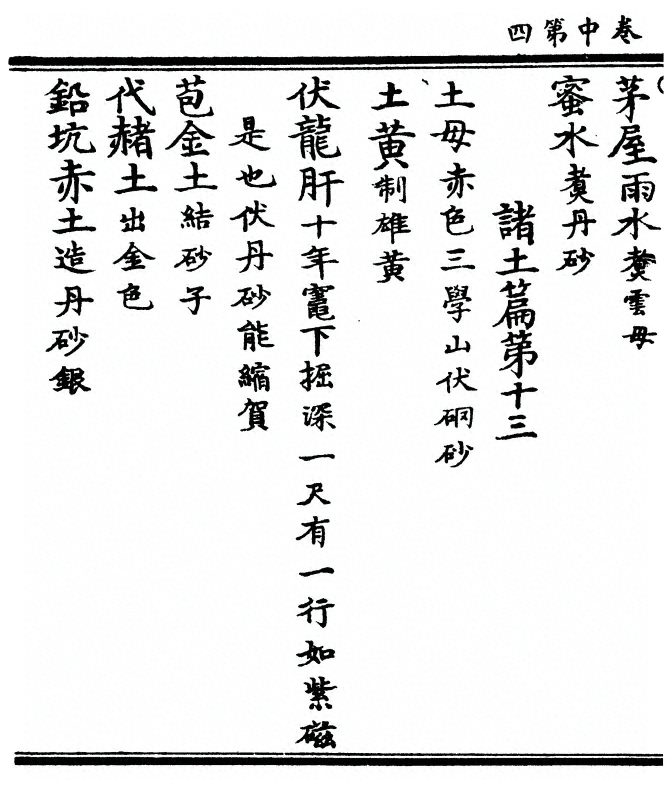 卷中第四
茅屋雨水煑雲母
蜜水煑丹砂
諸土篇第十三
土毋赤色三學山伏硇砂
土黃制雄黃
伏龍肝十年竈下掘深一尺有一行如紫磁
是也伏丹砂能縮賀
苞金土結砂子
代赭土出金色
鉛坑赤土造丹砂銀